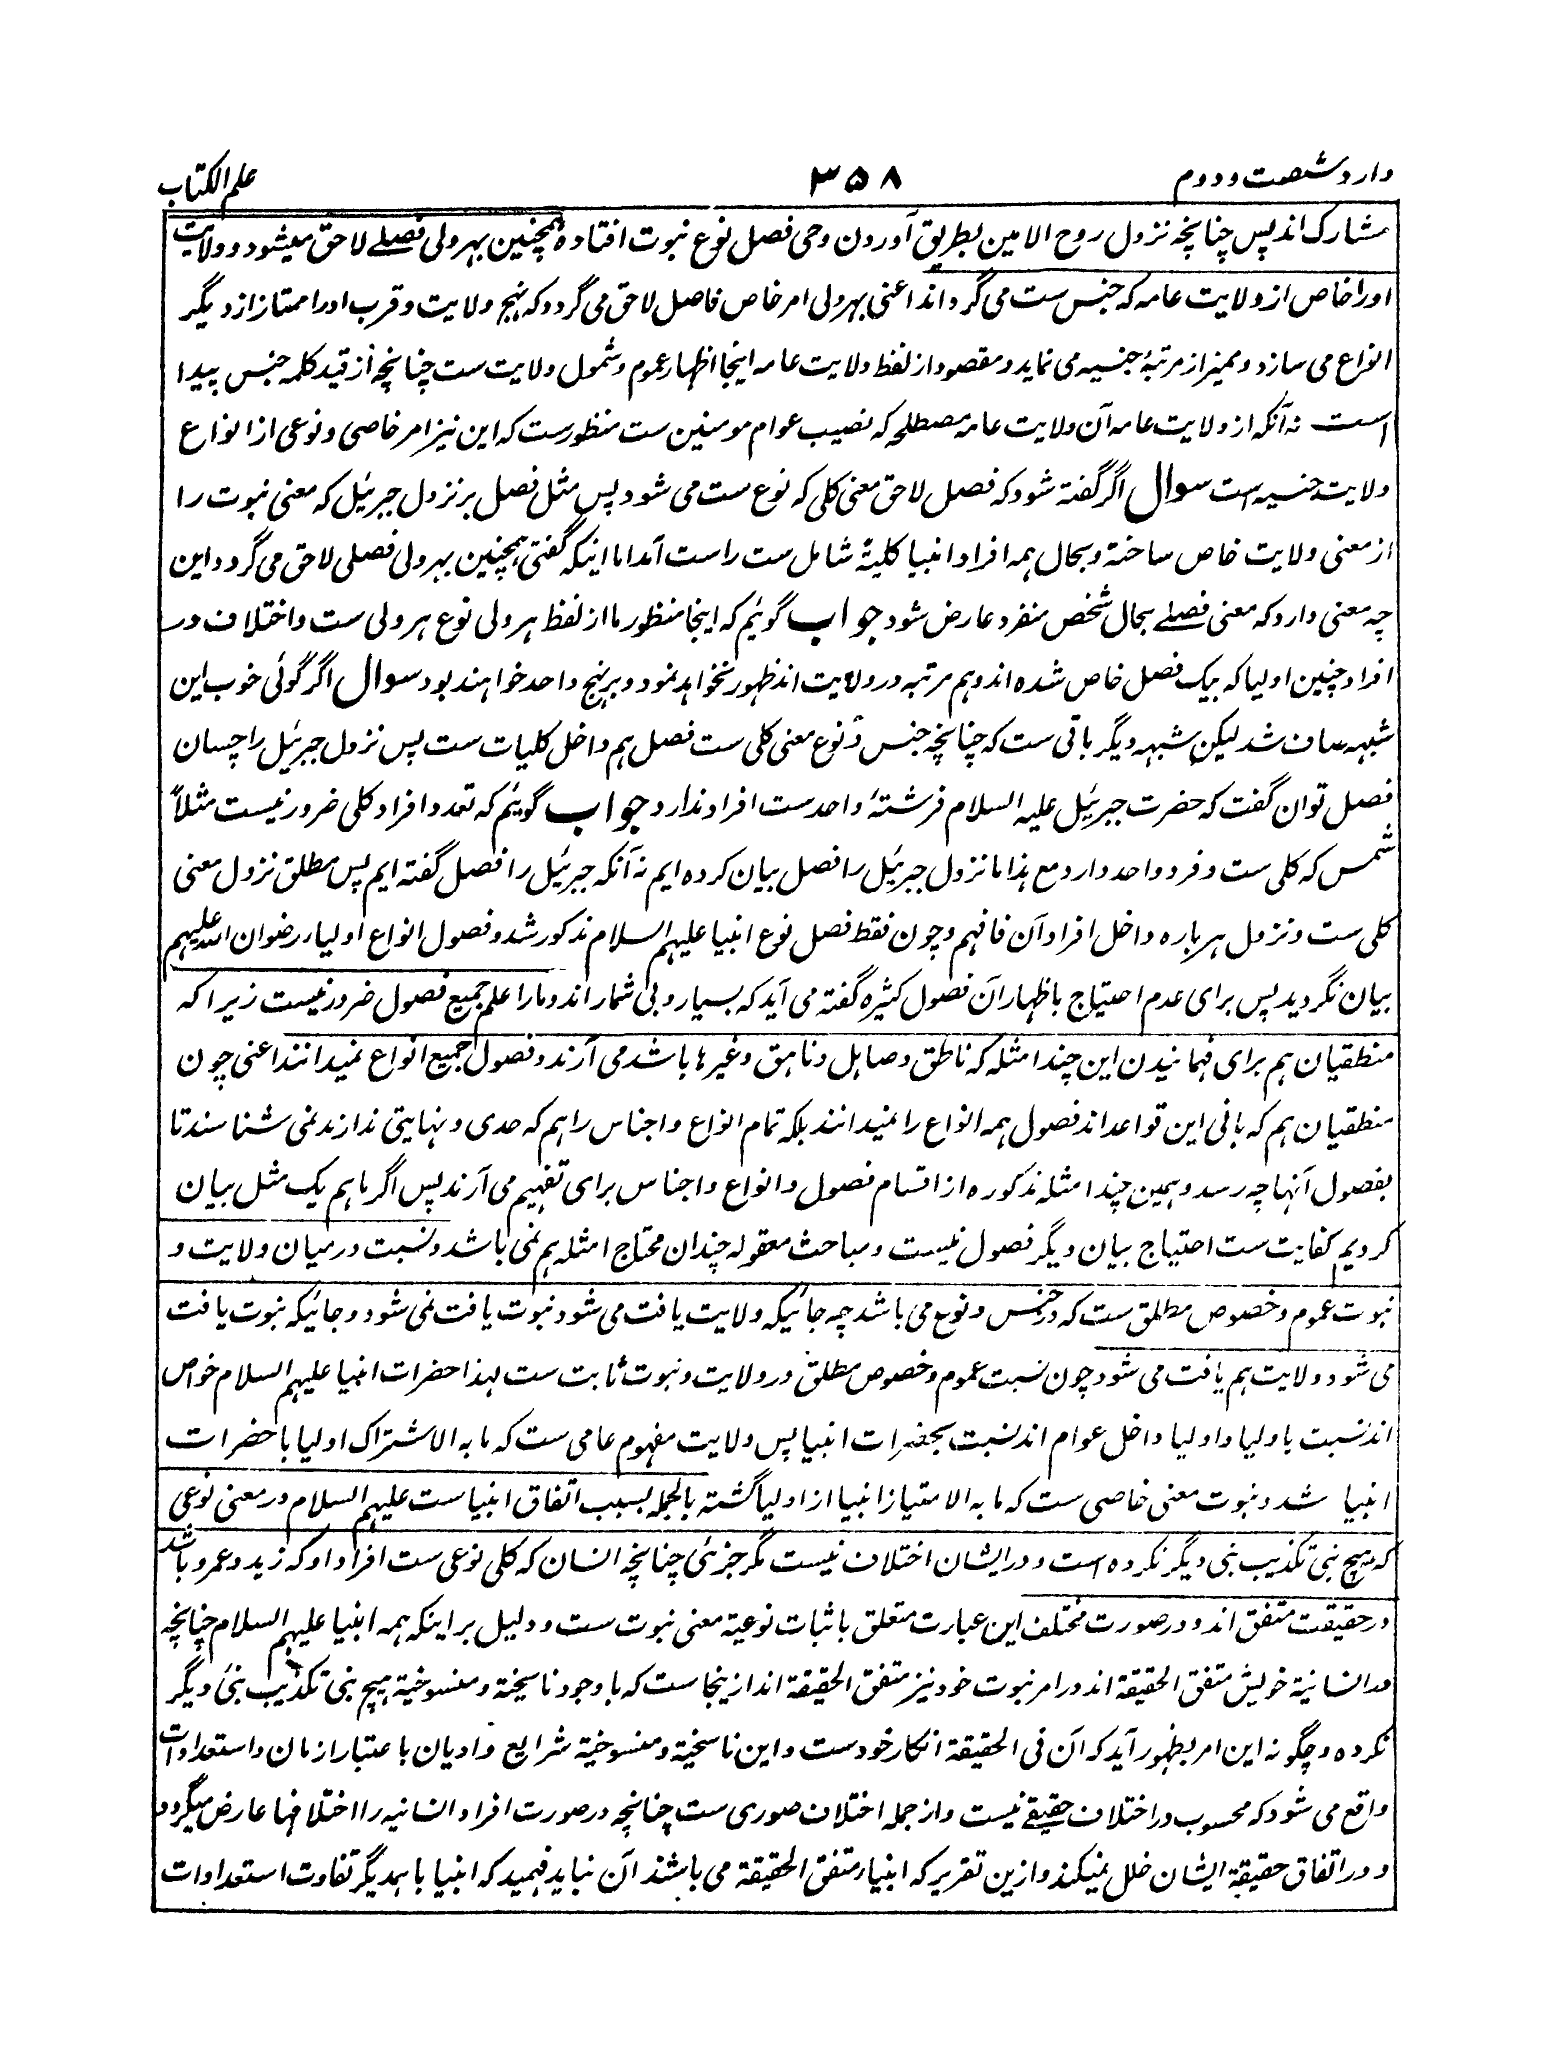 وارد شصت و دوم
۳۵۸
علم الکتاب
مشارک اند پس چنانچه نزول روح الامین بطریق آوردن وحی فصل نوع نبوت افتاده همچنین بهر ولی فصلے لاحق میشود و ولایت
اورا خاص از ولایت عامه که جنس ست می گرداند اعنی بهر ولی امر خاص فاصل لاحق می گردد که نهج ولایت و قرب او را ممتاز از دیگر
انواع می سازد و ممیز از مرتبهٔ جنسیه می نماید و مقصود از لفظ ولایت عامه اینجا اظهار عموم و شمول ولایت ست چنانچه از قید کلمه جنس پیدا
است نه آنکه از ولایت عامه آن ولایت عامه مصطلحه که نصیب عوام مومنین ست منظور ست که این نیز امر خاصی و نوعی از انواع
ولایت جنسیه است سوال اگر گفته شود که فصل لاحق معنی کلی که نوع ست می شود پس مثل فصل بر نزول جبرئیل که معنی نبوت را
از معنی ولایت خاص ساخته و بحال همه افراد انبیا کلیةً شامل ست راست آمد اما اینکه گفتی همچنین بهر ولی فصلی لاحق می گردد این
چه معنی دارد که معنی فصلے بحال شخص منفرد عارض شود جواب گوئیم که اینجا منظور ما از لفظ هر ولی نوع هر ولی ست و اختلاف در
افراد چنین اولیا که بیک فصل خاص شده اند و هم مرتبه در ولایت اند ظهور نخواهد نمود و بر نهج واحد خواهند بود سوال اگر گوئی خوب این
شبهه صاف شد لیکن شبهه دیگر باقی ست که چنانچه جنس و نوع معنی کلی ست فصل هم داخل کلیات ست پس نزول جبرئیل را چسان
فصل توان گفت که حضرت جبرئیل علیه السلام فرشتهٔ واحد ست افراد ندارد جواب گوئیم که تعدد افراد کلی ضرور نیست مثلاً
شمس که کلی ست و فرد واحد دارد مع هذا ما نزول جبرئیل را فصل بیان کرده ایم نه آنکه جبرئیل را فصل گفته ایم پس مطلق نزول معنی
کلی ست و نزول هر باره داخل افراد آن فافهم و چون فقط فصل نوع انبیا علیهم السلام مذکور شد و فصول انواع اولیاء رضوان الله علیهم
بیان نگردید پس برای عدم احتیاج باظهار آن فصول کثیره گفته می آید که بسیار و بی شمار اند و ما را علم جمیع فصول ضرور نیست زیرا که
منطقیان هم برای فهمانیدن این چند امثله که ناطق و صاهل و ناهق و غیرها باشد می آرند و فصول جمیع انواع نمیدانند اعنی چون
منطقیان هم که بانی این قواعد اند فصول همه انواع را نمیدانند بلکه تمام انواع و اجناس را هم که حدی و نهایتی ندارند نمی شناسند تا
بفصول آنها چه رسد و همین چند امثله مذکوره از اقسام فصول و انواع و اجناس برای تفهیم می آرند پس اگر ما هم یک مثل بیان
کردیم کفایت ست احتیاج بیان دیگر فصول نیست و مباحث معقوله چندان محتاج امثله هم نمی باشد و نسبت درمیان ولایت و
نبوت عموم و خصوص مطلق ست که در جنس و نوع می باشد چه جائیکه ولایت یافت می شود نبوت یافت نمی شود و جائیکه نبوت یافت
می شود ولایت هم یافت می شود چون نسبت عموم و خصوص مطلق در ولایت و نبوت ثابت ست لهذا حضرات انبیا علیهم السلام خواص
اند نسبت باولیا و اولیا داخل عوام اند نسبت بحضرات انبیا پس ولایت مفهوم عامی ست که ما به الاشتراک اولیا با حضرات
انبیا شد و نبوت معنی خاصی ست که ما به الامتیاز انبیا از اولیا گشته بالجمله بسبب اتفاق انبیاست علیهم السلام در معنی نوعی
که هیچ نبی تکذیب نبی دیگر نکرده است و در ایشان اختلاف نیست مگر جزئی چنانچه انسان که کلی نوعی ست افراد او که زید و عمرو باشد
در حقیقت متفق اند و در صورت مختلف این عبارت متعلق باثبات نوعیة معنی نبوت ست و دلیل بر اینکه همه انبیا علیهم السلام چنانچه
در انسانیة خویش متفق الحقیقة اند در امر نبوت خود نیز متفق الحقیقة اند ازینجاست که با وجود ناسخیة و منسوخیة هیچ نبی تکذیب نبی دیگر
نکرده و چگونه این امر بظهور آید که آن فی الحقیقة انکار خودست و این ناسخیة و منسوخیة شرایع و ادیان باعتبار ازمان و استعدادات
واقع می شود که محسوب در اختلاف حقیقے نیست و از جمله اختلاف صوری ست چنانچه در صورت افراد انسانیه را اختلافها عارض میگردد
و در اتفاق حقیقة ایشان خلل نمیکند و ازین تقریر که انبیاء متفق الحقیقة می باشند آن نباید فهمید که انبیا با همدیگر تفاوت استعدادات